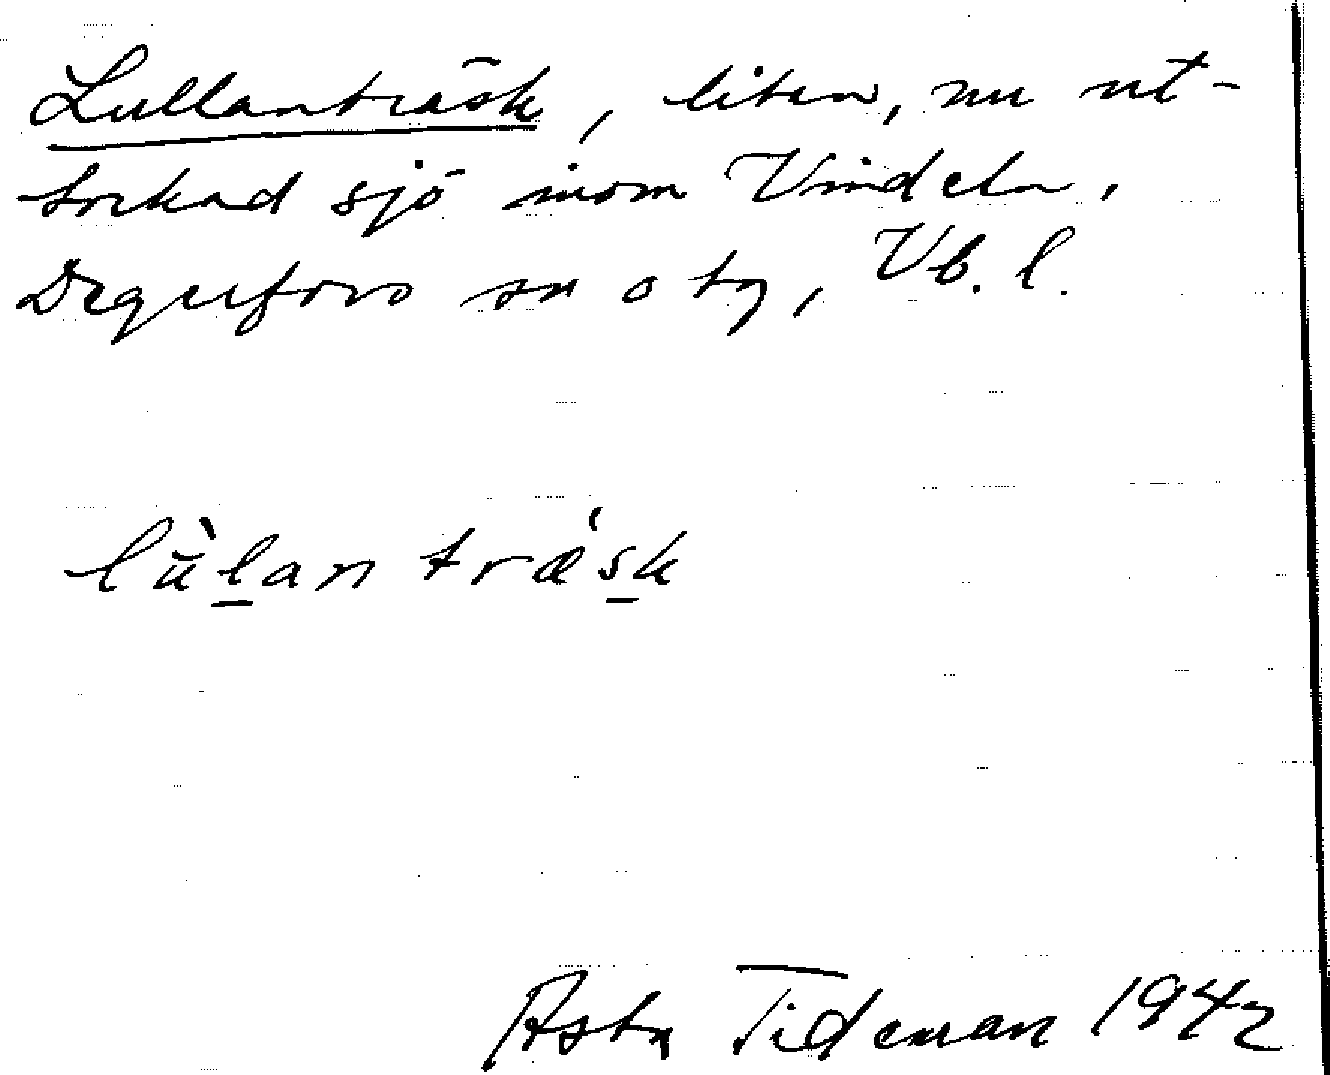 Lullanträsk, liten, nu ut-
torkad sjö inom Vindeln,
Degerfors sn o tg, Vb. l.
lùlan træ´sk
Asta Tideman 1942